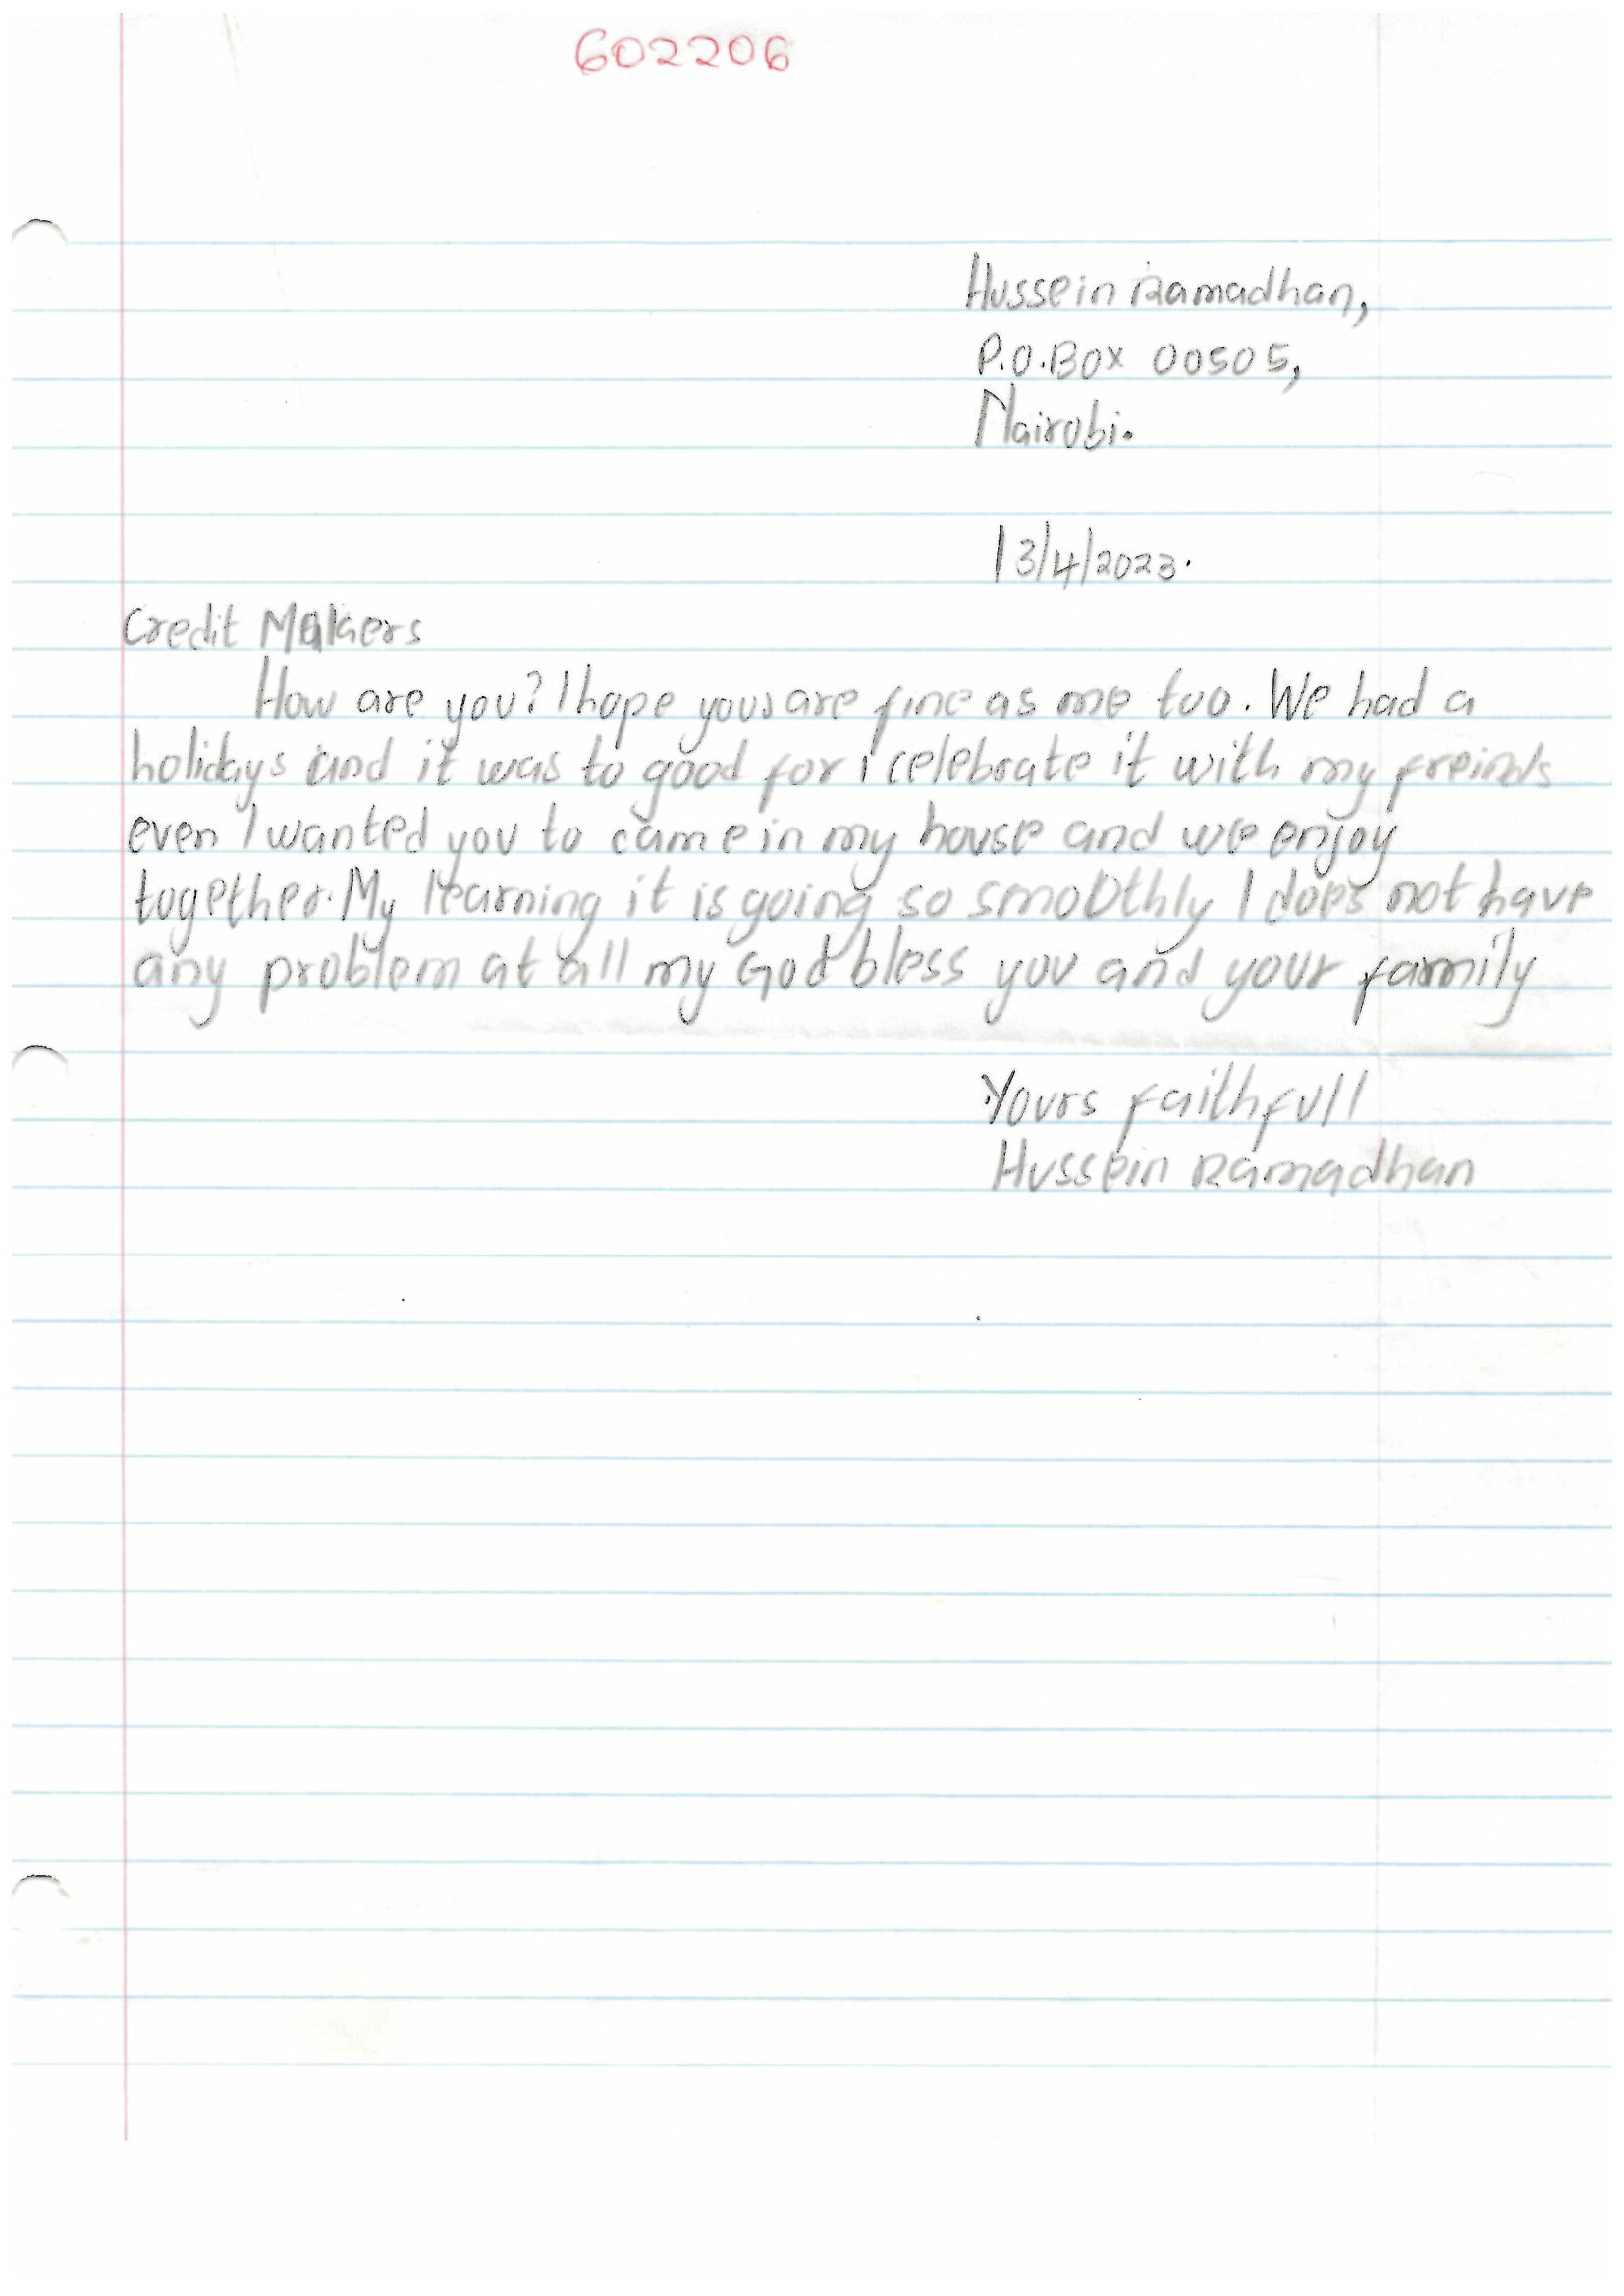 602206
Hussein Ramadhan,
P.O.Box 00505,
Nairobi.
13/4/2023.
Credit Makers
How are you? I hope yous are fine as me too. We had a
holidays and it was to good for i celebrate it with my freinds
even I wanted you to came in my house and we enjoy
together. My learning it is going so smoothly I does not have
any problem at all my God bless you and your family
Yours faithfull
Hussein Ramadhan